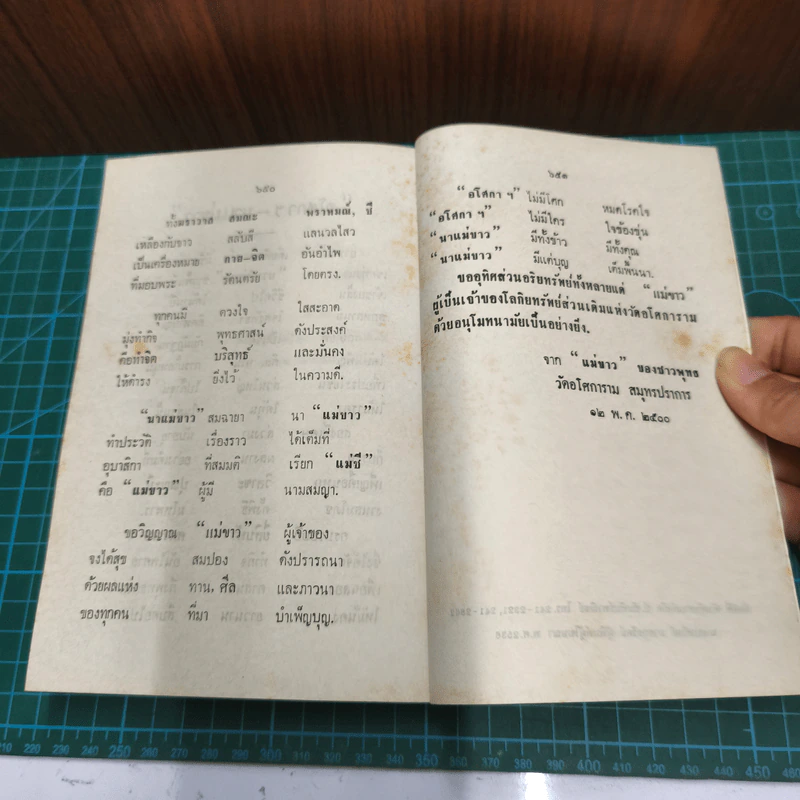 ๖๕๐
ทั้งฆราวาส สมณะ พราหมณ์, ชี
เหลืองกับขาว สลับสี แลนวลไสว
เป็นเครื่องหมาย กาย-จิต อันอำไพ
ที่มอบพระ รัตนตรัย โดยตรง.
ทุกคนมี ดวงใจ ใสสะอาด
มุ่งทำกิจ พุทธศาสน์ ดังประสงค์
คือทำจิต บริสุทธ์ และมั่นคง
ให้ดำรง ยิ่งไว้ ในความดี.
“นาแม่ขาว” สมฉายา นา “แม่ขาว”
ทำประวัติ เรื่องราว ได้เต็มที่
อุบาสิกา ที่สมมติ เรียก “แม่ชี”
คือ “แม่ขาว” ผู้มี นามสมญา.
ขอวิญญาณ “แม่ขาว” ผู้เจ้าของ
จงได้สุข สมปอง ดังปรารถนา
ด้วยผลแห่ง ทาน, ศีล และภาวนา
ของทุกคน ที่มา บำเพ็ญบุญ.
๖๕๑
“อโศกา ฯ” ไม่มีโศก หมดโรคใจ
“อโศกา ฯ” ไม่มีใคร ใจข้องขุ่น
“นาแม่ขาว” มีทั้งข้าว มีทั้งคุณ
“นาแม่ขาว” มีแต่บุญ เต็มพื้นนา.
ขออุทิศส่วนอริยทรัพย์ทั้งหลายแด่ “แม่ขาว”
ผู้เป็นเจ้าของโลกิยทรัพย์ส่วนเดิมแห่งวัดอโศการาม
ด้วยอนุโมทนามัยเป็นอย่างยิ่ง.
จาก “แม่ขาว” ของชาวพุทธ
วัดอโศการาม สมุทรปราการ
๑๒ พ. ค. ๒๕๐๐
210 220 230 240 250 260 270 280 290 300 310 320 330 340 350 360 370 380 390 400 410 420 430 440 450 460